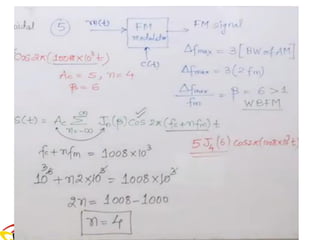 5
m(t)
FM
modulator
FM signal
c(t)
Cos2π(1008×10³t)
Ac = 5, n = 4
β = 6
Δfmax = 3[BW of AM]
Δfmax = 3(2fm)
Δfmax / fm = β = 6 > 1
WBFM
S(t) = Ac ∑ Jn(β) Cos 2π(fc+nfm)t
n=-∞
∞
fc + nfm = 1008×10³
5 J4(6) cos2π(1008×10³t)
10⁶ + n2×10³ = 1008×10³
3
2n = 1008-1000
n = 4